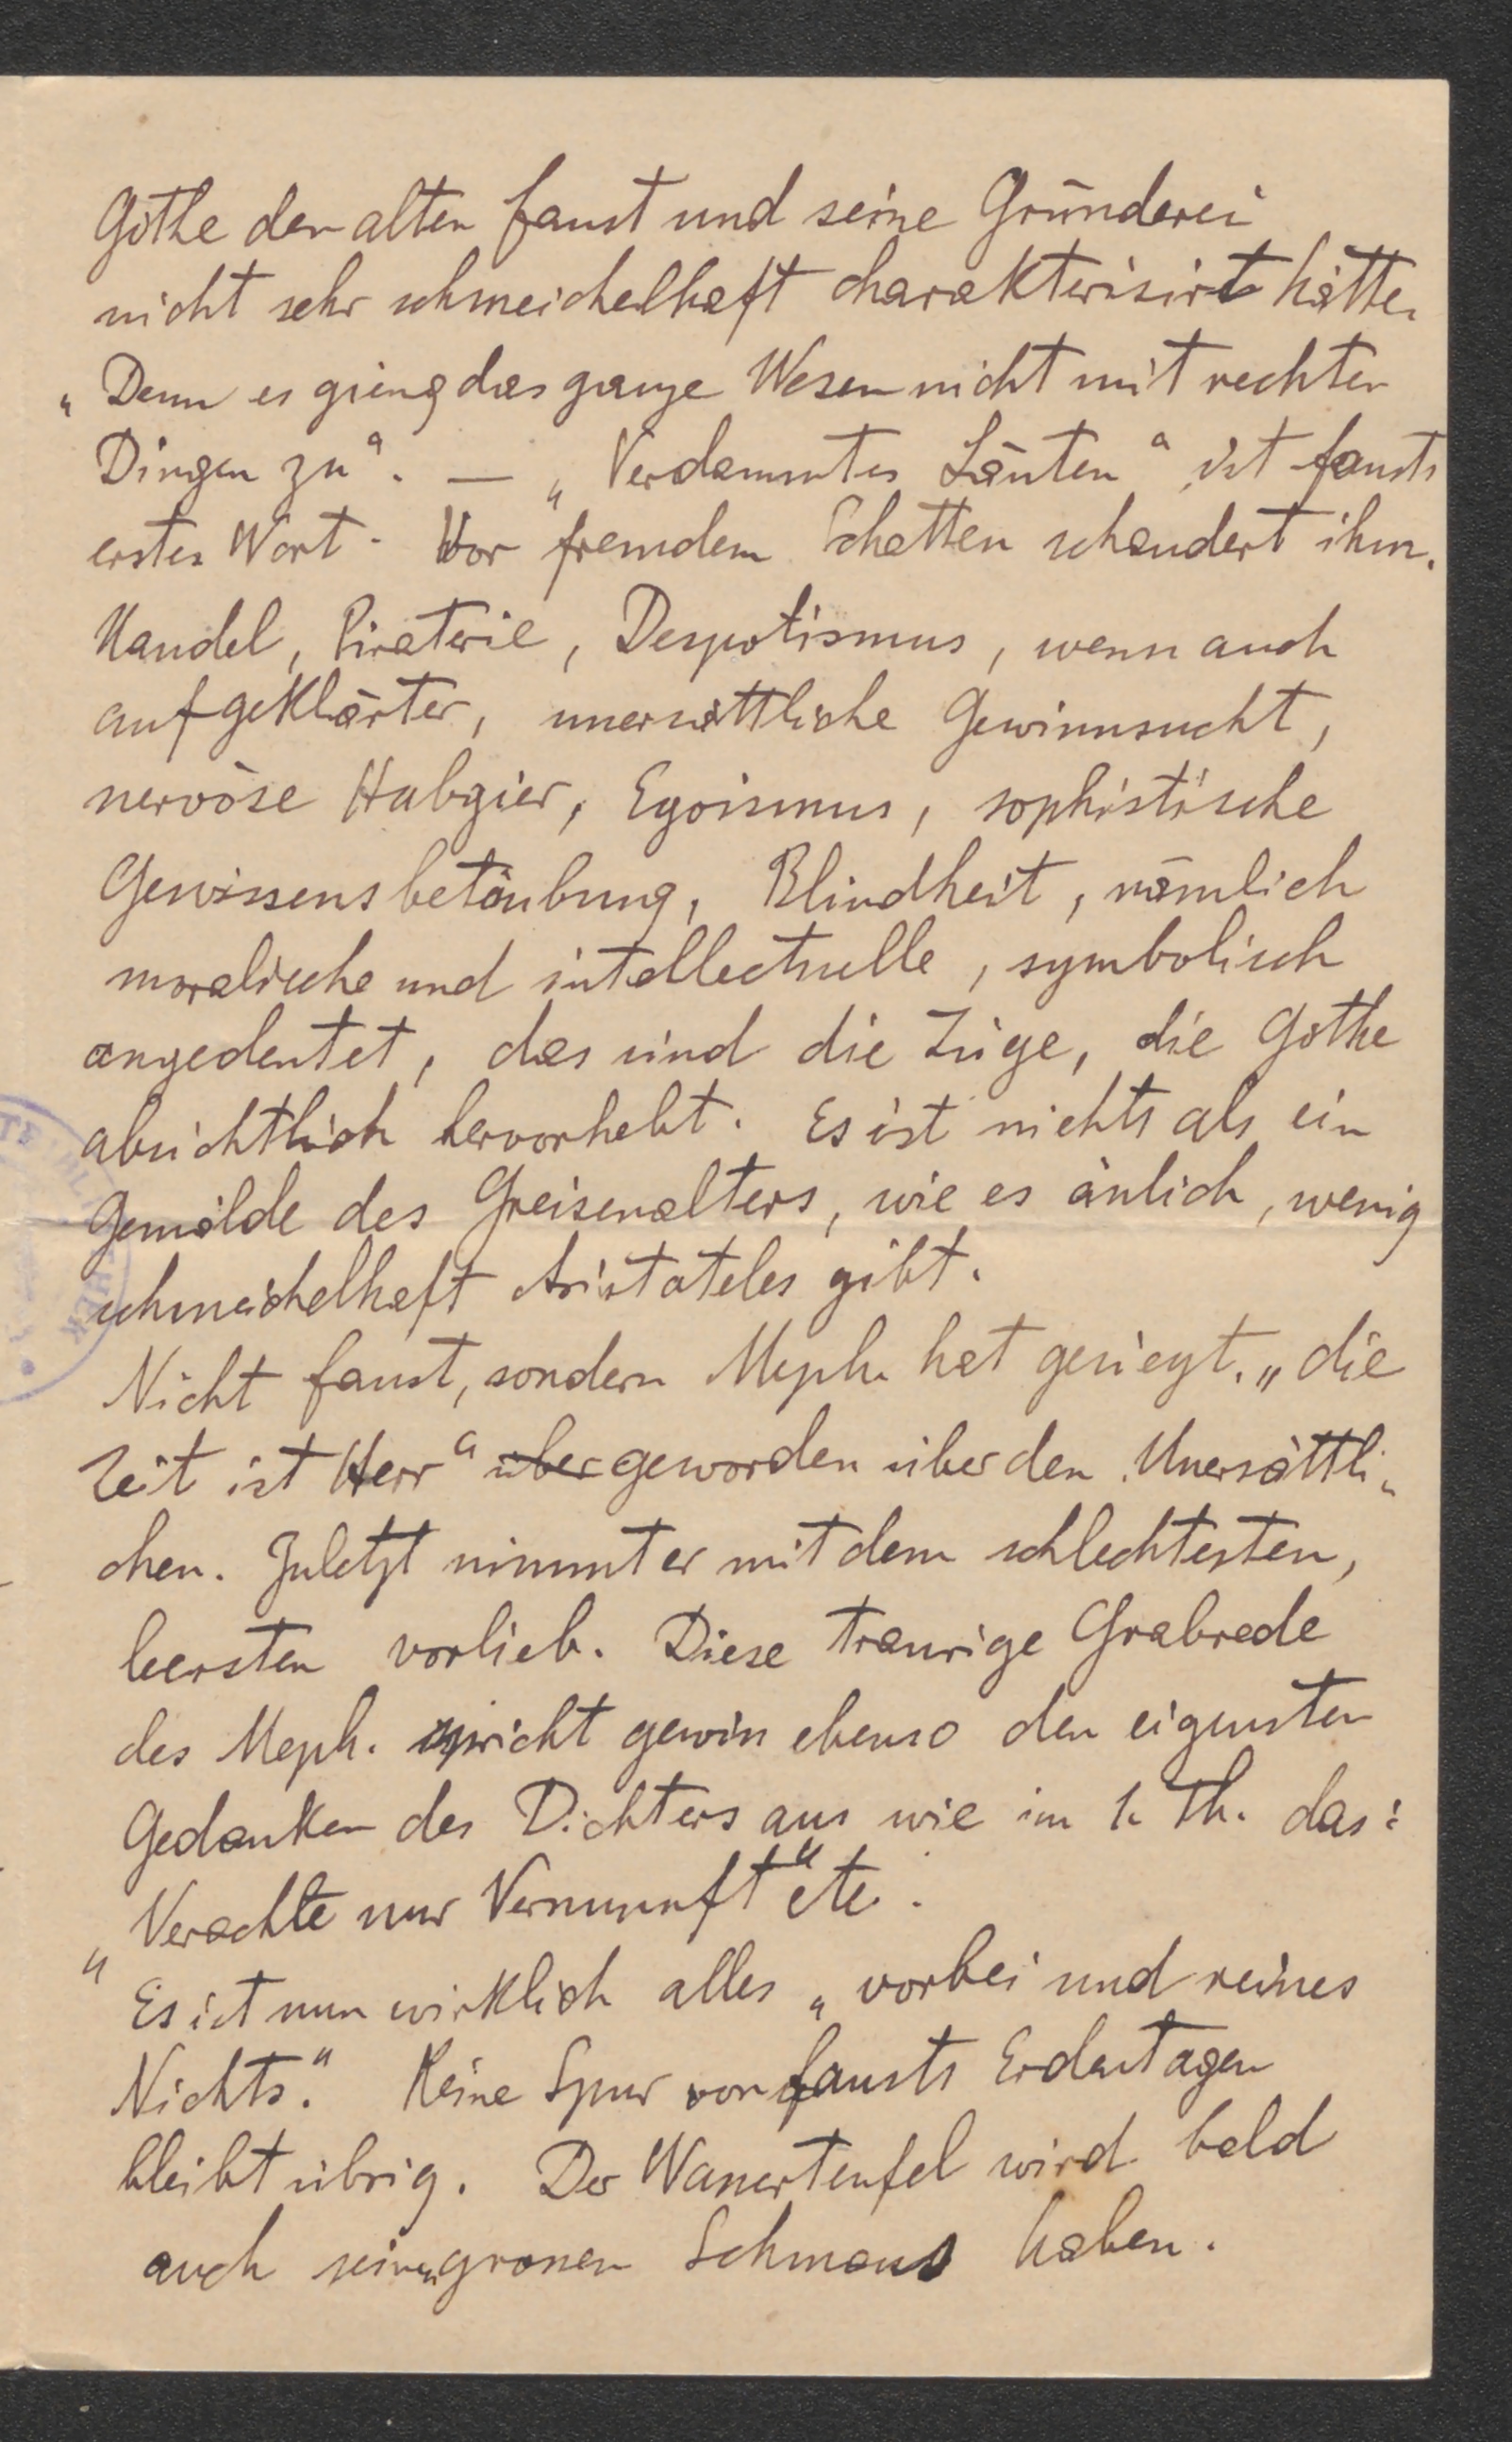 Göthe den alten Faust und seine Gründerei
nicht sehr schmeichelhaft charakterisirt hätte.
„Denn es gieng das ganze Wesen nicht mit rechten
Dingen zu“. — „Verdammtes Läuten“ ist Fausts
erstes Wort. Vor fremdem Schatten schaudert ihm.
Handel, Piraterie, Despotismus, wenn auch
aufgeklärter, unersättliche Gewinnsucht,
nervöse Habgier, Egoismus, sophistische
Gewissensbetäubung, Blindheit, nämlich
moralische und intellectuelle, symbolisch
angedeutet, das sind die Züge, die Göthe
absichtlich hervorhebt. Es ist nichts als ein
Gemälde des Greisenalters, wie es änlich, wenig
schmeichelhaft Aristoteles gibt.
Nicht Faust, sondern Meph. hat gesiegt. „die
Zeit ist Herr“ über geworden über den Unersättli-
chen. Zuletzt nimmt er mit dem schlechtesten,
leersten vorlieb. Diese traurige Grabrede
des Meph. spricht gewiss ebenso den eigensten
Gedanken des Dichters aus wie im 1. Th. das:
„Verachte nur Vernunft“ etc.
Es ist nun wirklich alles „vorbei und reines
Nichts.“ Keine Spur von Fausts Erdentagen
bleibt übrig. Der Wasserteufel wird bald
auch seinen grossen Schmaus haben.